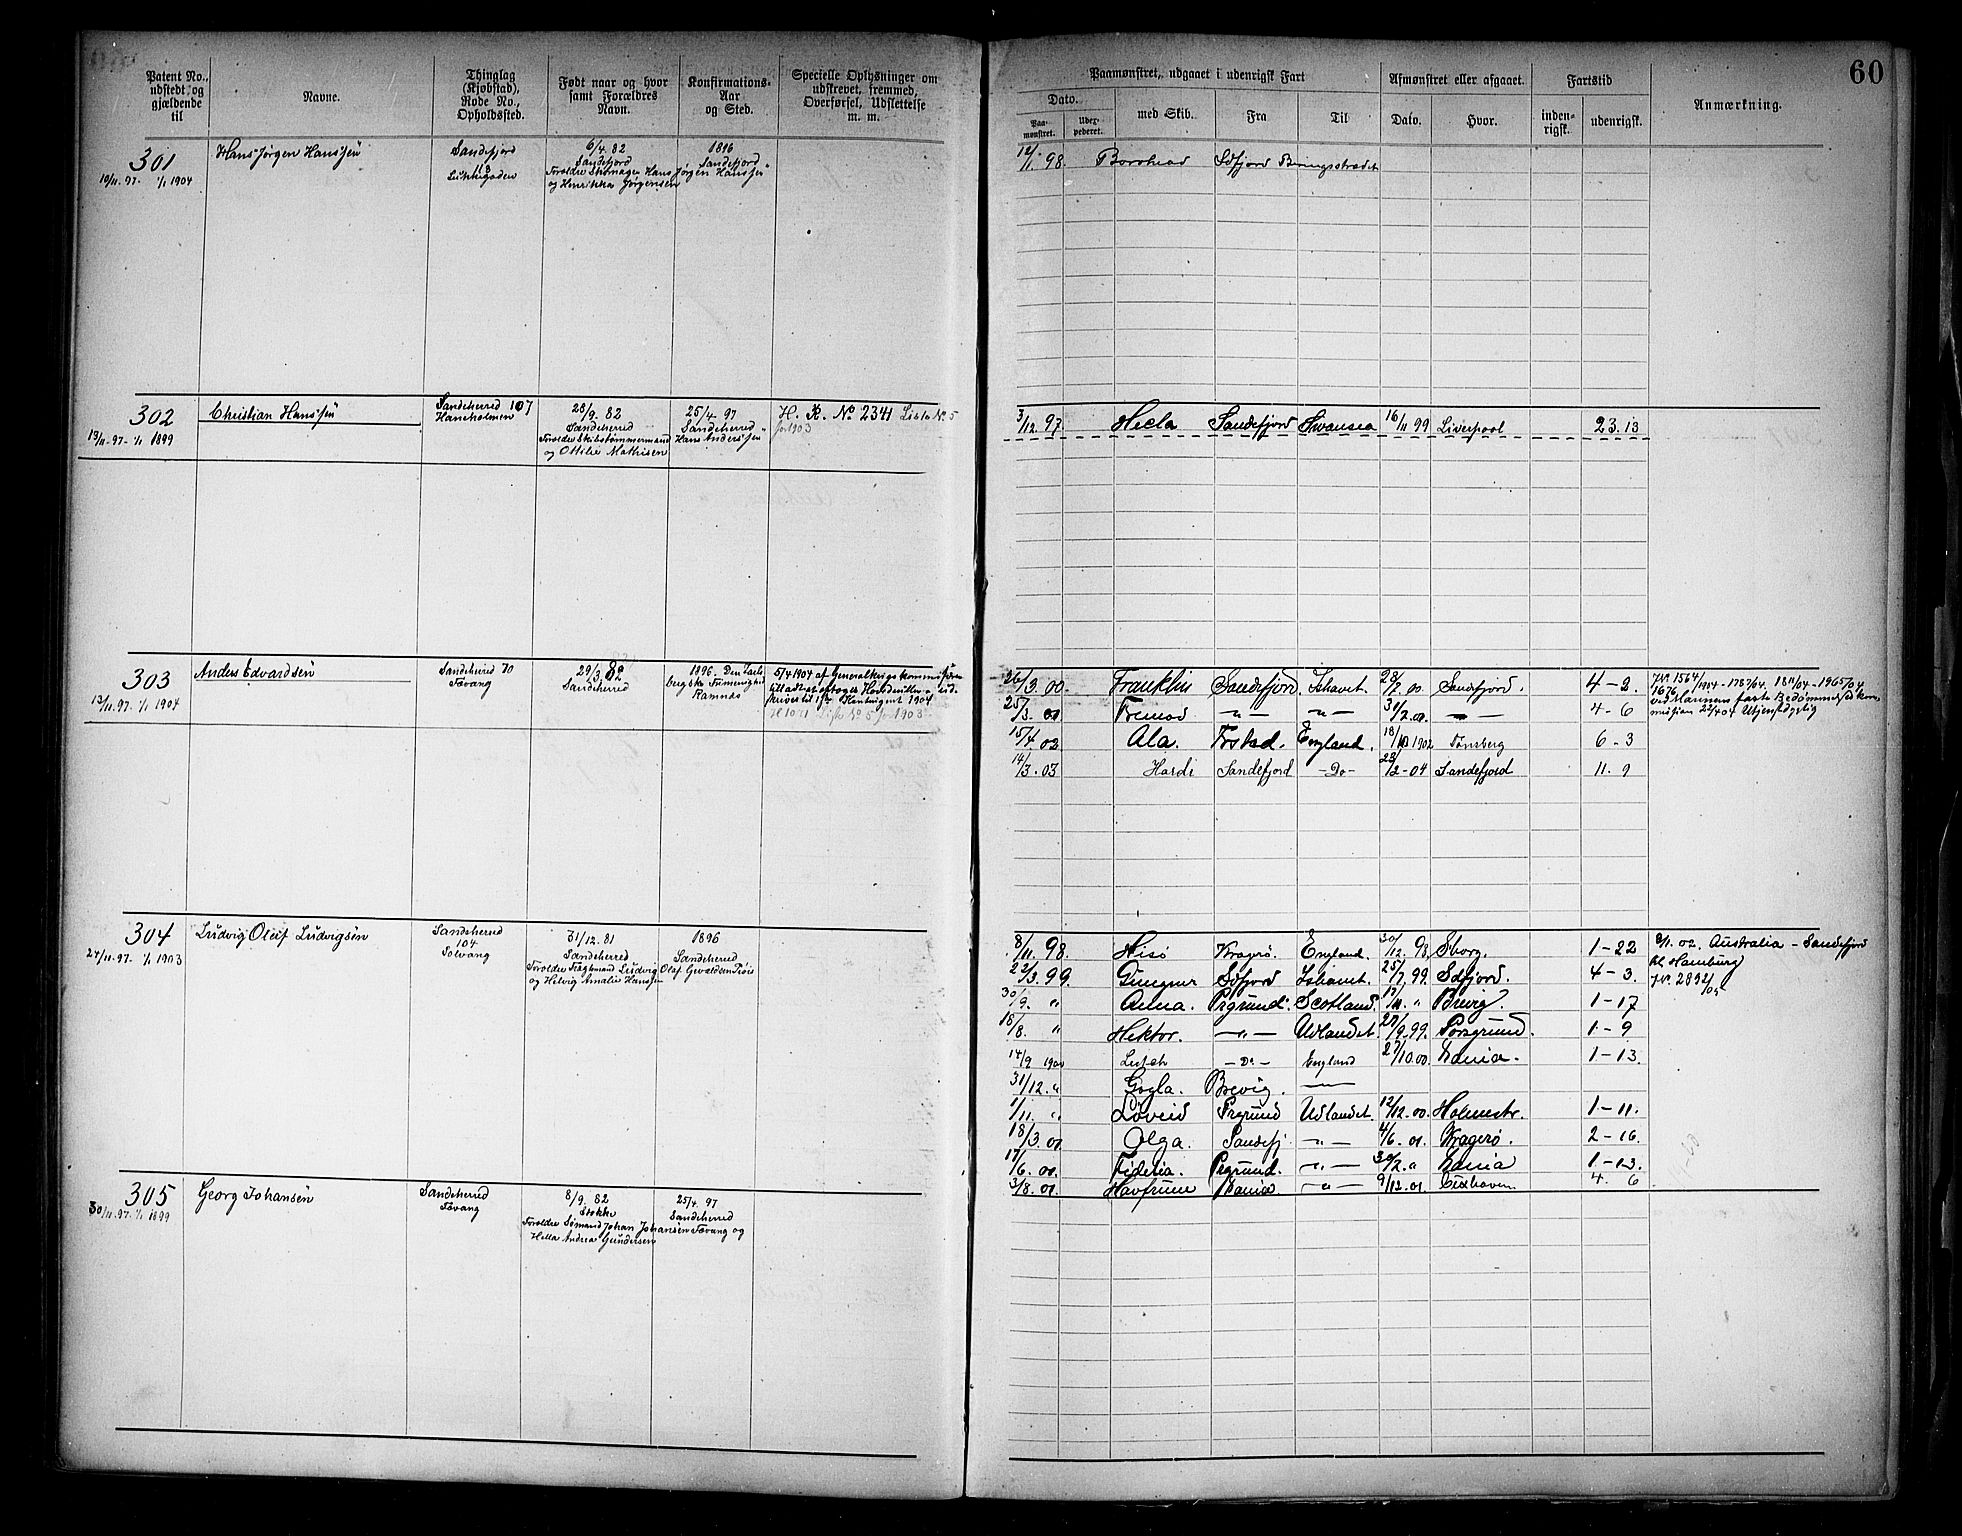 60
Patent No., udstedt og gjældende til
Navne.
Thinglag (Kjøbstad), Rode No., Opholdssted.
Født naar og hvor samt Forældres Navn.
Konfirmations-Aar og Sted.
Specielle Oplysninger om udskrevet, fremmed, Overførsel, Udslettelse m. m.
Paamønstret, udgaaet i udenrigsk Fart
Afmønstret eller afgaaet.
Fartstid
Anmærkning.
Dato.
med Skib.
Fra
Til
Dato.
Hvor.
inden-rigsk.
udenrigsk.
Paa-mønstret.
301
10/11.97. 1/1 1904
Hans Jørgen Hanssen
Sandefjord
113
6/4. 82
Sandefjord
Forældre Skomager Hans Jørgen Hanssen
og Henrikka Jørgensen
1896
Sandefjord
12/1. 98. Borrhead Sdfjord Beringsstrædet
302
13/11-97- 1/1 1899
Christian Hanssen
Sandeherred 107
Haneholmen
28/9. 82
Sandeherred
Forældre Skibstømmermand Hans Anderssen
og Ottilie Mathisen
25/4 97
Sandeherred
H. R. No 2341 Liste No 5
for 1903
3/12. 97 Hecla Sandefjord Swansea 16/11 99 Liverpool 23. 13
303
13/11.97. 1/1 1904
Anders Edvardsen
Sandeherred 70
Fevang
29/3. 82
Sandeherred
1896. Den Jarls
bergske Frimenighed
Ramnæs
5/4 1904 af Generalkrigskommissæren
1904
Liste No 5 for 1903
26/3. 00. Franklin Sandefjord Ishavet. 28/7. 00. Sandefjord. 4-2.
25/3. 01 Fremad -"- -"- 31/7. 01. -"- 4-6
15/4 02 Ala. Frstad. England. 18/10 1902 Tønsberg 6-3
14/3. 03 Hardi Sandefjord -Do- 23/2-04 Sandefjord 11. 9
304
24/11-97. 1/1 1903
Ludvig Oluf Ludvigsen
Sandeherred
104
Solvang
31/12. 81
Sandeherred
Forældre Fragtmand Ludvig Oluf
og Helvig Amalie Hanssen
1896
Sandeherred
8/11. 98. Hisø Kragerø. England. 30/12. 98, Sborg. 1-22
22/3. 99. Gungner Sdfjord Ishavet. 25/7. 99. Sdfjord. 4-3.
30/9. " Anna. Prgrund. Scotland. Brevig. 1-17
18/8. " Hektor. -"- Udlandet. 27/9. 99. Porsgrund. 1-9
14/9 1900 -Do- England 27/10. 00. Xania. 1-13.
31/12. " Gogla. Brevig.
1/11. " Løveid Prgrund Udlandet. 12/12. 00. Holmestr. 1-11.
18/3. 01. Olga. Sandefj. -"- 4/6. 01. Kragerø. 2-16.
17/6. 01. Fidelia. Prgrund. -"- 30/7. " Xania 1-13.
3/8. 01. Havfruen Xania -"- 9/12. 01. Cuxhaven. 4-6
02. Australia - Sandefjord
til Hamburg
Jr. 2892/05
305
30/11-97. 1/1 1899
Georg Johansen
Sandeherred
Fevang
8/9. 82
Stokke
Forældre Sømand Johan Johansen Fevang og
Hella Andrea Gundersen
25/4. 97
Sandeherred